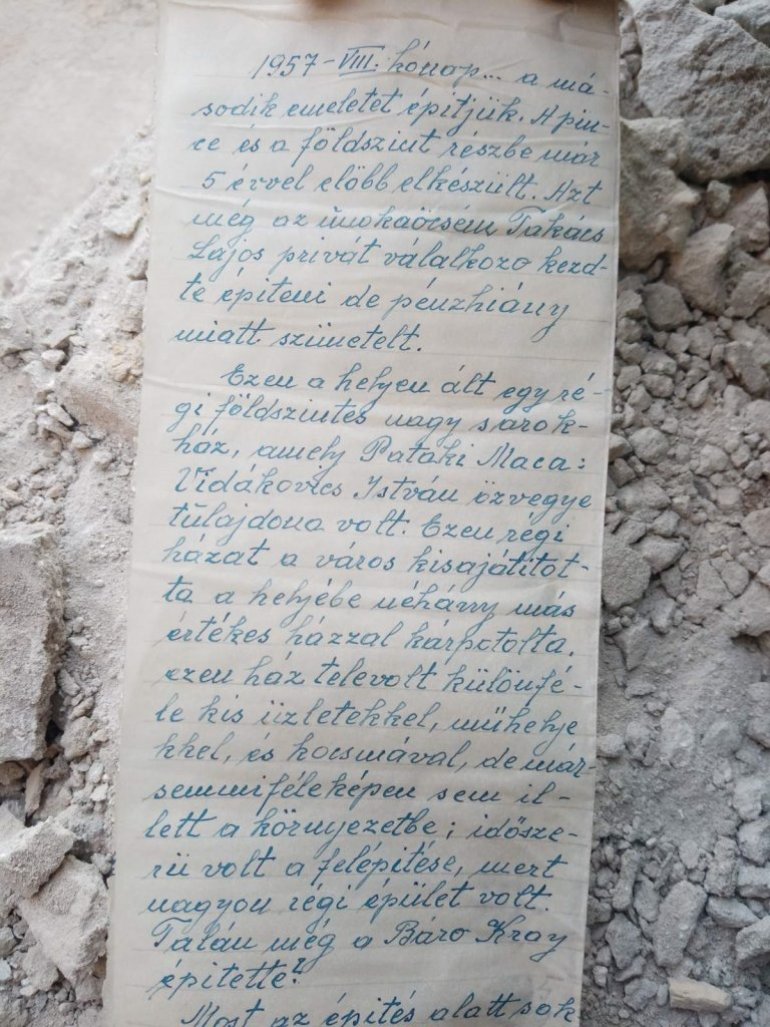 1957-VIII. hónap... a má-
sodik emeletet épitjük. A pin-
ce és a földszint részbe már
5 évvel előbb elkészült. Azt
még az unokaöcsém Takács
Lajos privát válalkozo kezd-
te épiteni de pénzhiány
miatt szünetelt.
Ezen a helyen ált egy ré-
gi földszintes nagy sarok-
ház, amely Pataki Maca:
Vidákovics István özvegye
tulajdona volt. Ezen régi
házat a város kisajátitot-
ta a helyébe néhány más
értékes házzal kárpotolta.
ezen ház televolt különfé-
le kis üzletekkel, műhelye
kkel, és kocsmával, de már
semmiféleképen sem il-
lett a környezetbe; idősze-
rü volt a felépitése, mert
nagyon régi épület volt.
Talán még a Báro Kray
épitette?
Most az épités alatt sok